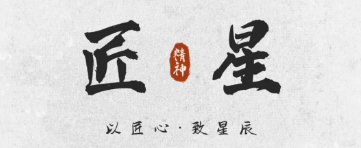 匠精神星
以匠心·致星辰